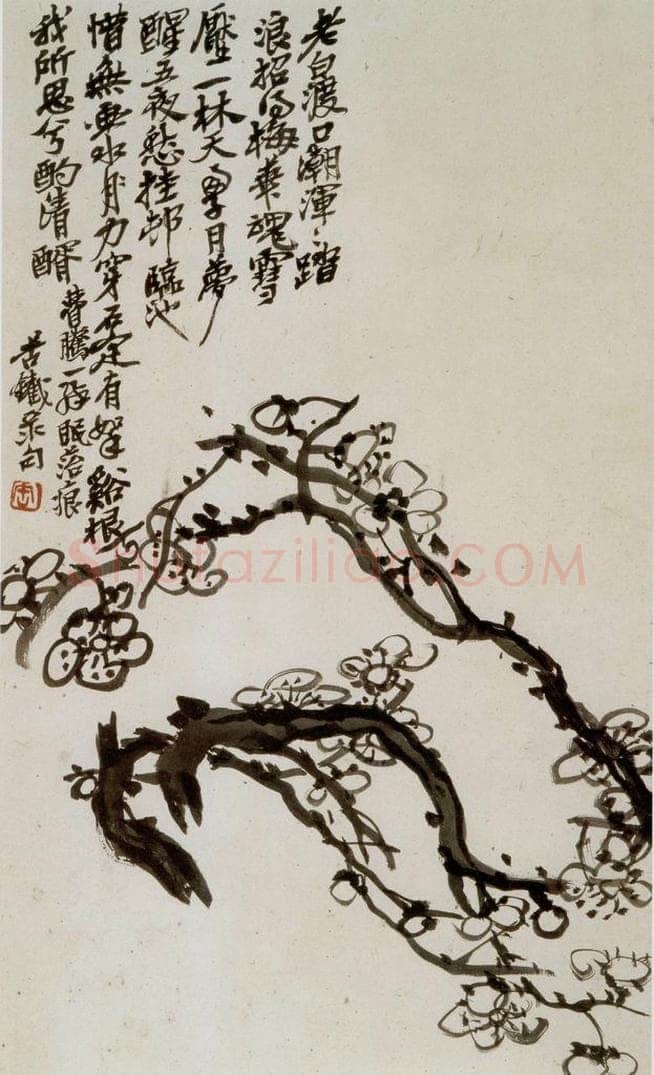 老白渡口潮渾〻踏
浪招得梅華魂雪
壓一林天得月夢
醒五夜愁挂邨臨池
惜無乘水月力穿石定有拏谿根
我所思兮酌清醑瞢騰一醉眠落痕
苦鐵录句
Shufaziliao.COM